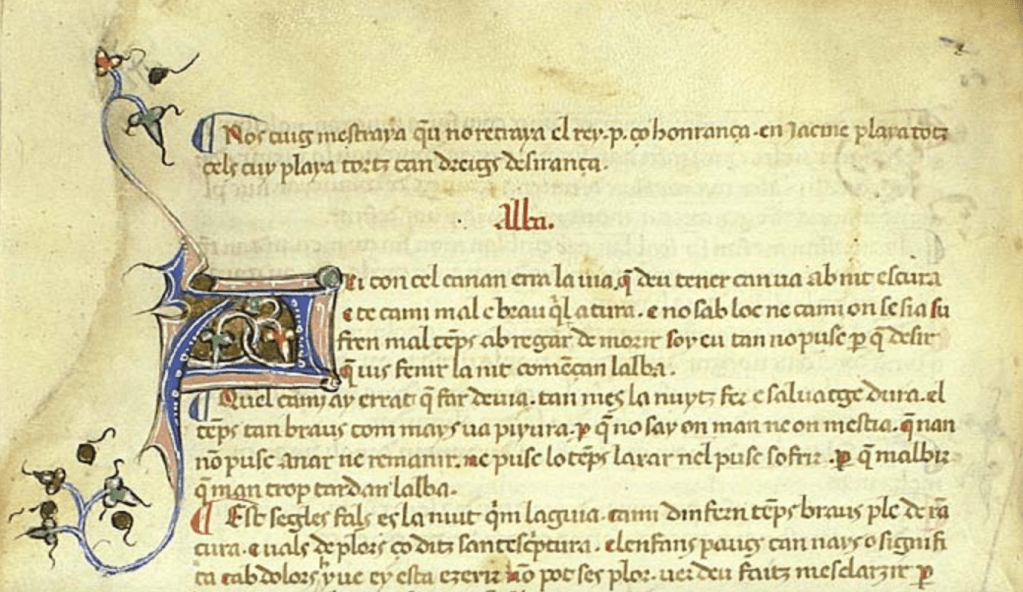 Nos cuig mestraya qui no retraya el rey .p. ço honrança. en Jacme playa totz
cels cuy playa tortz can dreigs desirança.
Alba.
Axi con cel canan erra la uia, q̃ deu tener can ua ab nit escura
e te cami mal e brau q̃l atura. e no sab loc ne cami on se sia su
fren mal tẽps ab regar de morir soy eu tan no pusc ꝑ q̃ desir
q̃ uis fenir la nit comẽçan lalba.
Quel cami ay errat q̃ far deuia. tan mes la nuytz fer e saluatge dura. el
tẽps tan braus com mays ua piyura. ꝑ q̃ no say on man ne on mestia. q̃ nan
nõ pusc anar ne remanir. ne pusc lo tẽps laxar nel pusc sofrir. ꝑ q̃ malbir
q̃ man trop tardan lalba.
Est segles fals es la nuit q̃m laguia. cami dinfern tẽps braus ple de rã
cura. e uals de plors ço ditz santescp̃tura. el enfans paucs can nays o signifi
ca e ab dolors y ue ey esta exir nõ pot ses plor. uer deu faitz mesclatz ir ꝑ